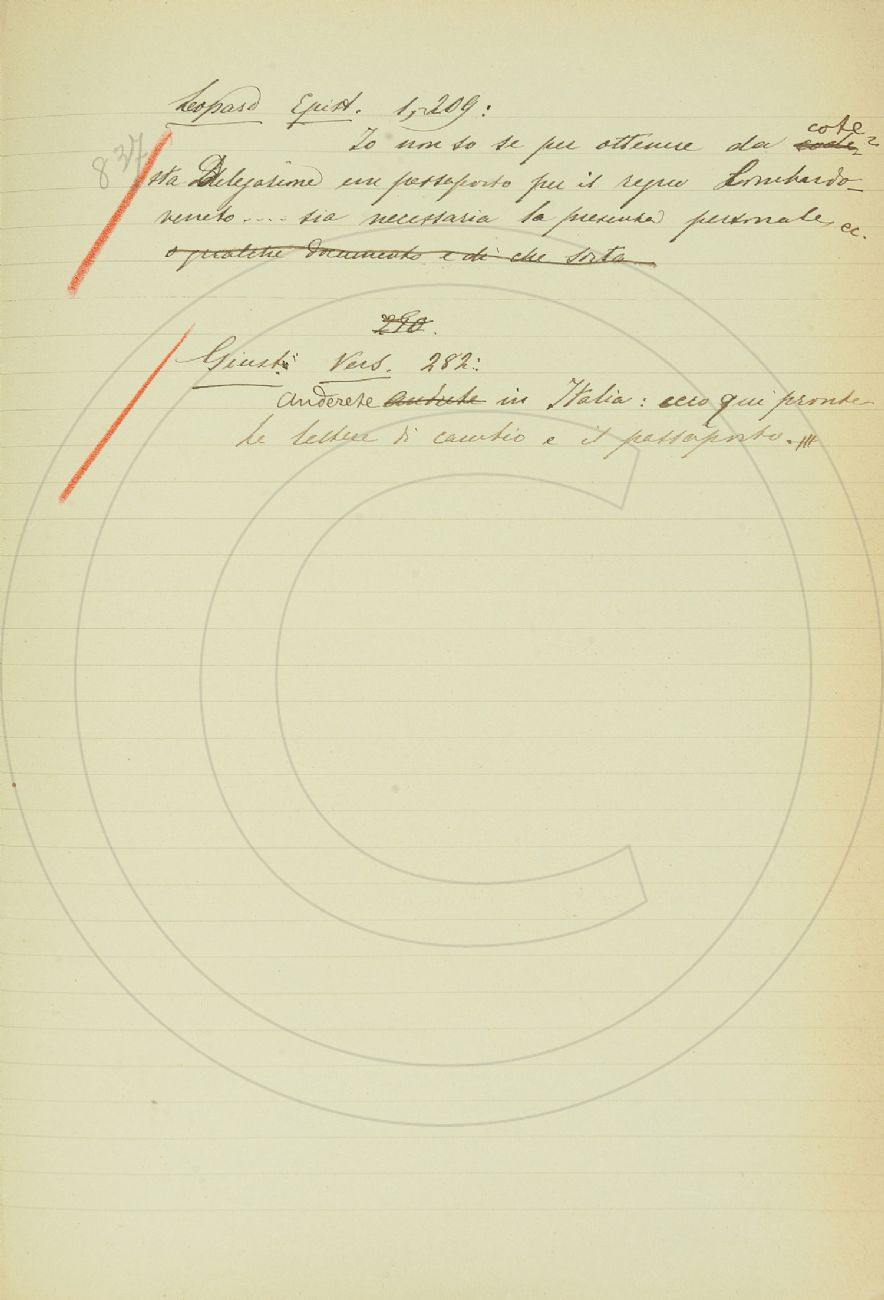 Leopard Epist. 1, 209:
837
Io non so se per ottenere da cote-
sta Delegazione un passaporto per il regno Lombardo-
veneto.... sia necessaria la presenza personale, ec.
o qualche documento e di che sorta
290.
Giusti Vers. 282:
Anderete andrete in Italia: ecco qui pronte
le lettere di cambio e il passaporto.